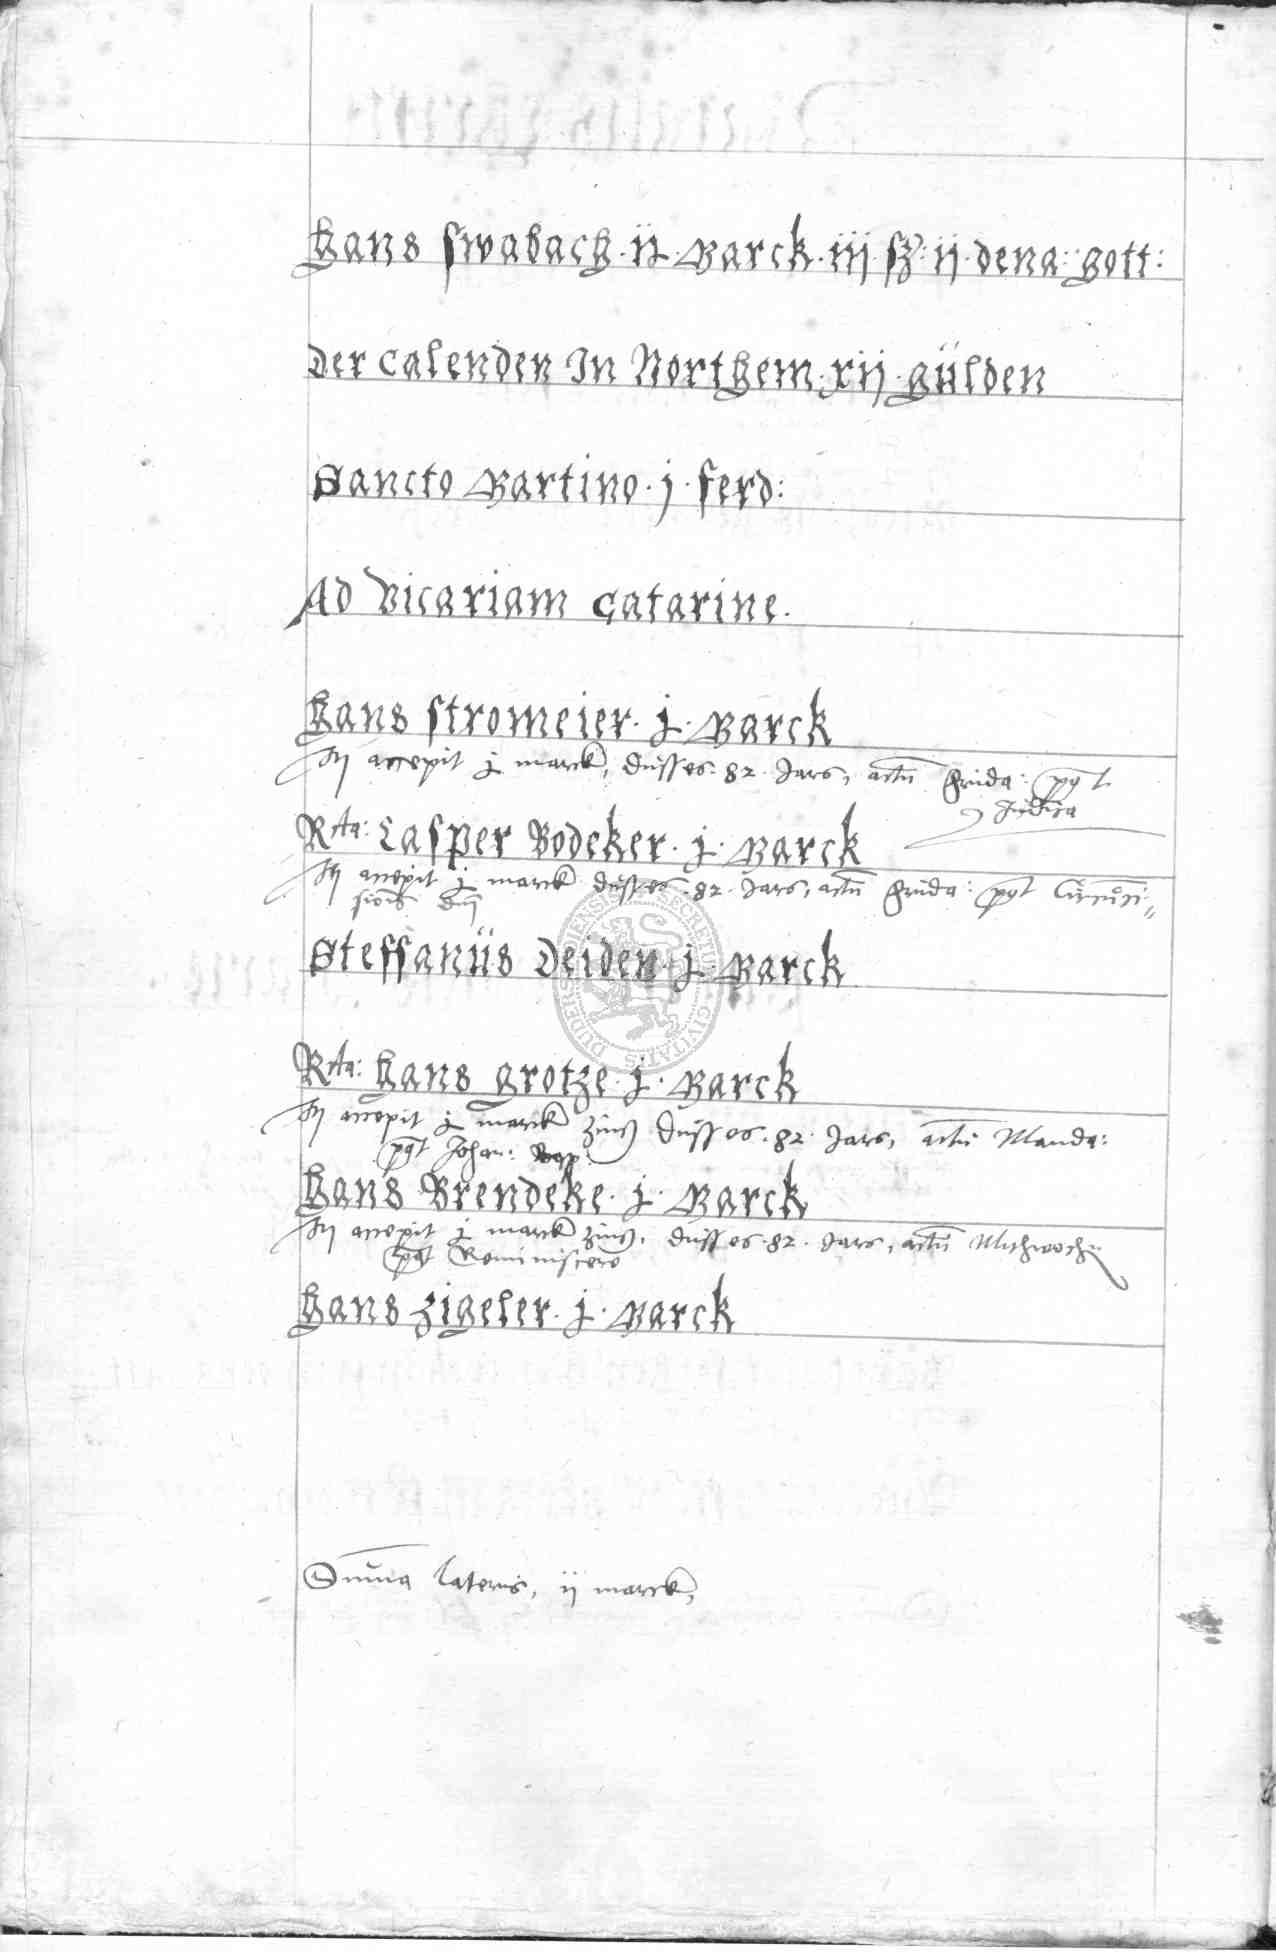 Hans swabach · ii · Marck · iij ß: ij · dena: gott:
Der Calenden In Northem · xij · gülden
Sancto Martino · j · ferd:
Ad Vicariam Catarine.
Hans stromeier · j · Marck
accepit j marck, dusses · 82 · Jars, actu Frida: post
Judica
Rta: Casper Bodeker · j · Marck
accepit j marck dusses · 82 · Jars, actu Frida: post Circumci=
sionis dni
Steffanus Deiden · j · Marck
Rta: Hans grotze · j · Marck
accepit j marck zinß dusses · 82 · Jars, actu Manda:
post Johan: Bap:
Hans Brendeke · j · Marck
accepit j marck zinß, dusses · 82 · Jars, actu Mithwoch
post Reminiscere
Hans zigeler · j · Marck
Suma lateris, ij marck,
SECRETUM CIVITATIS